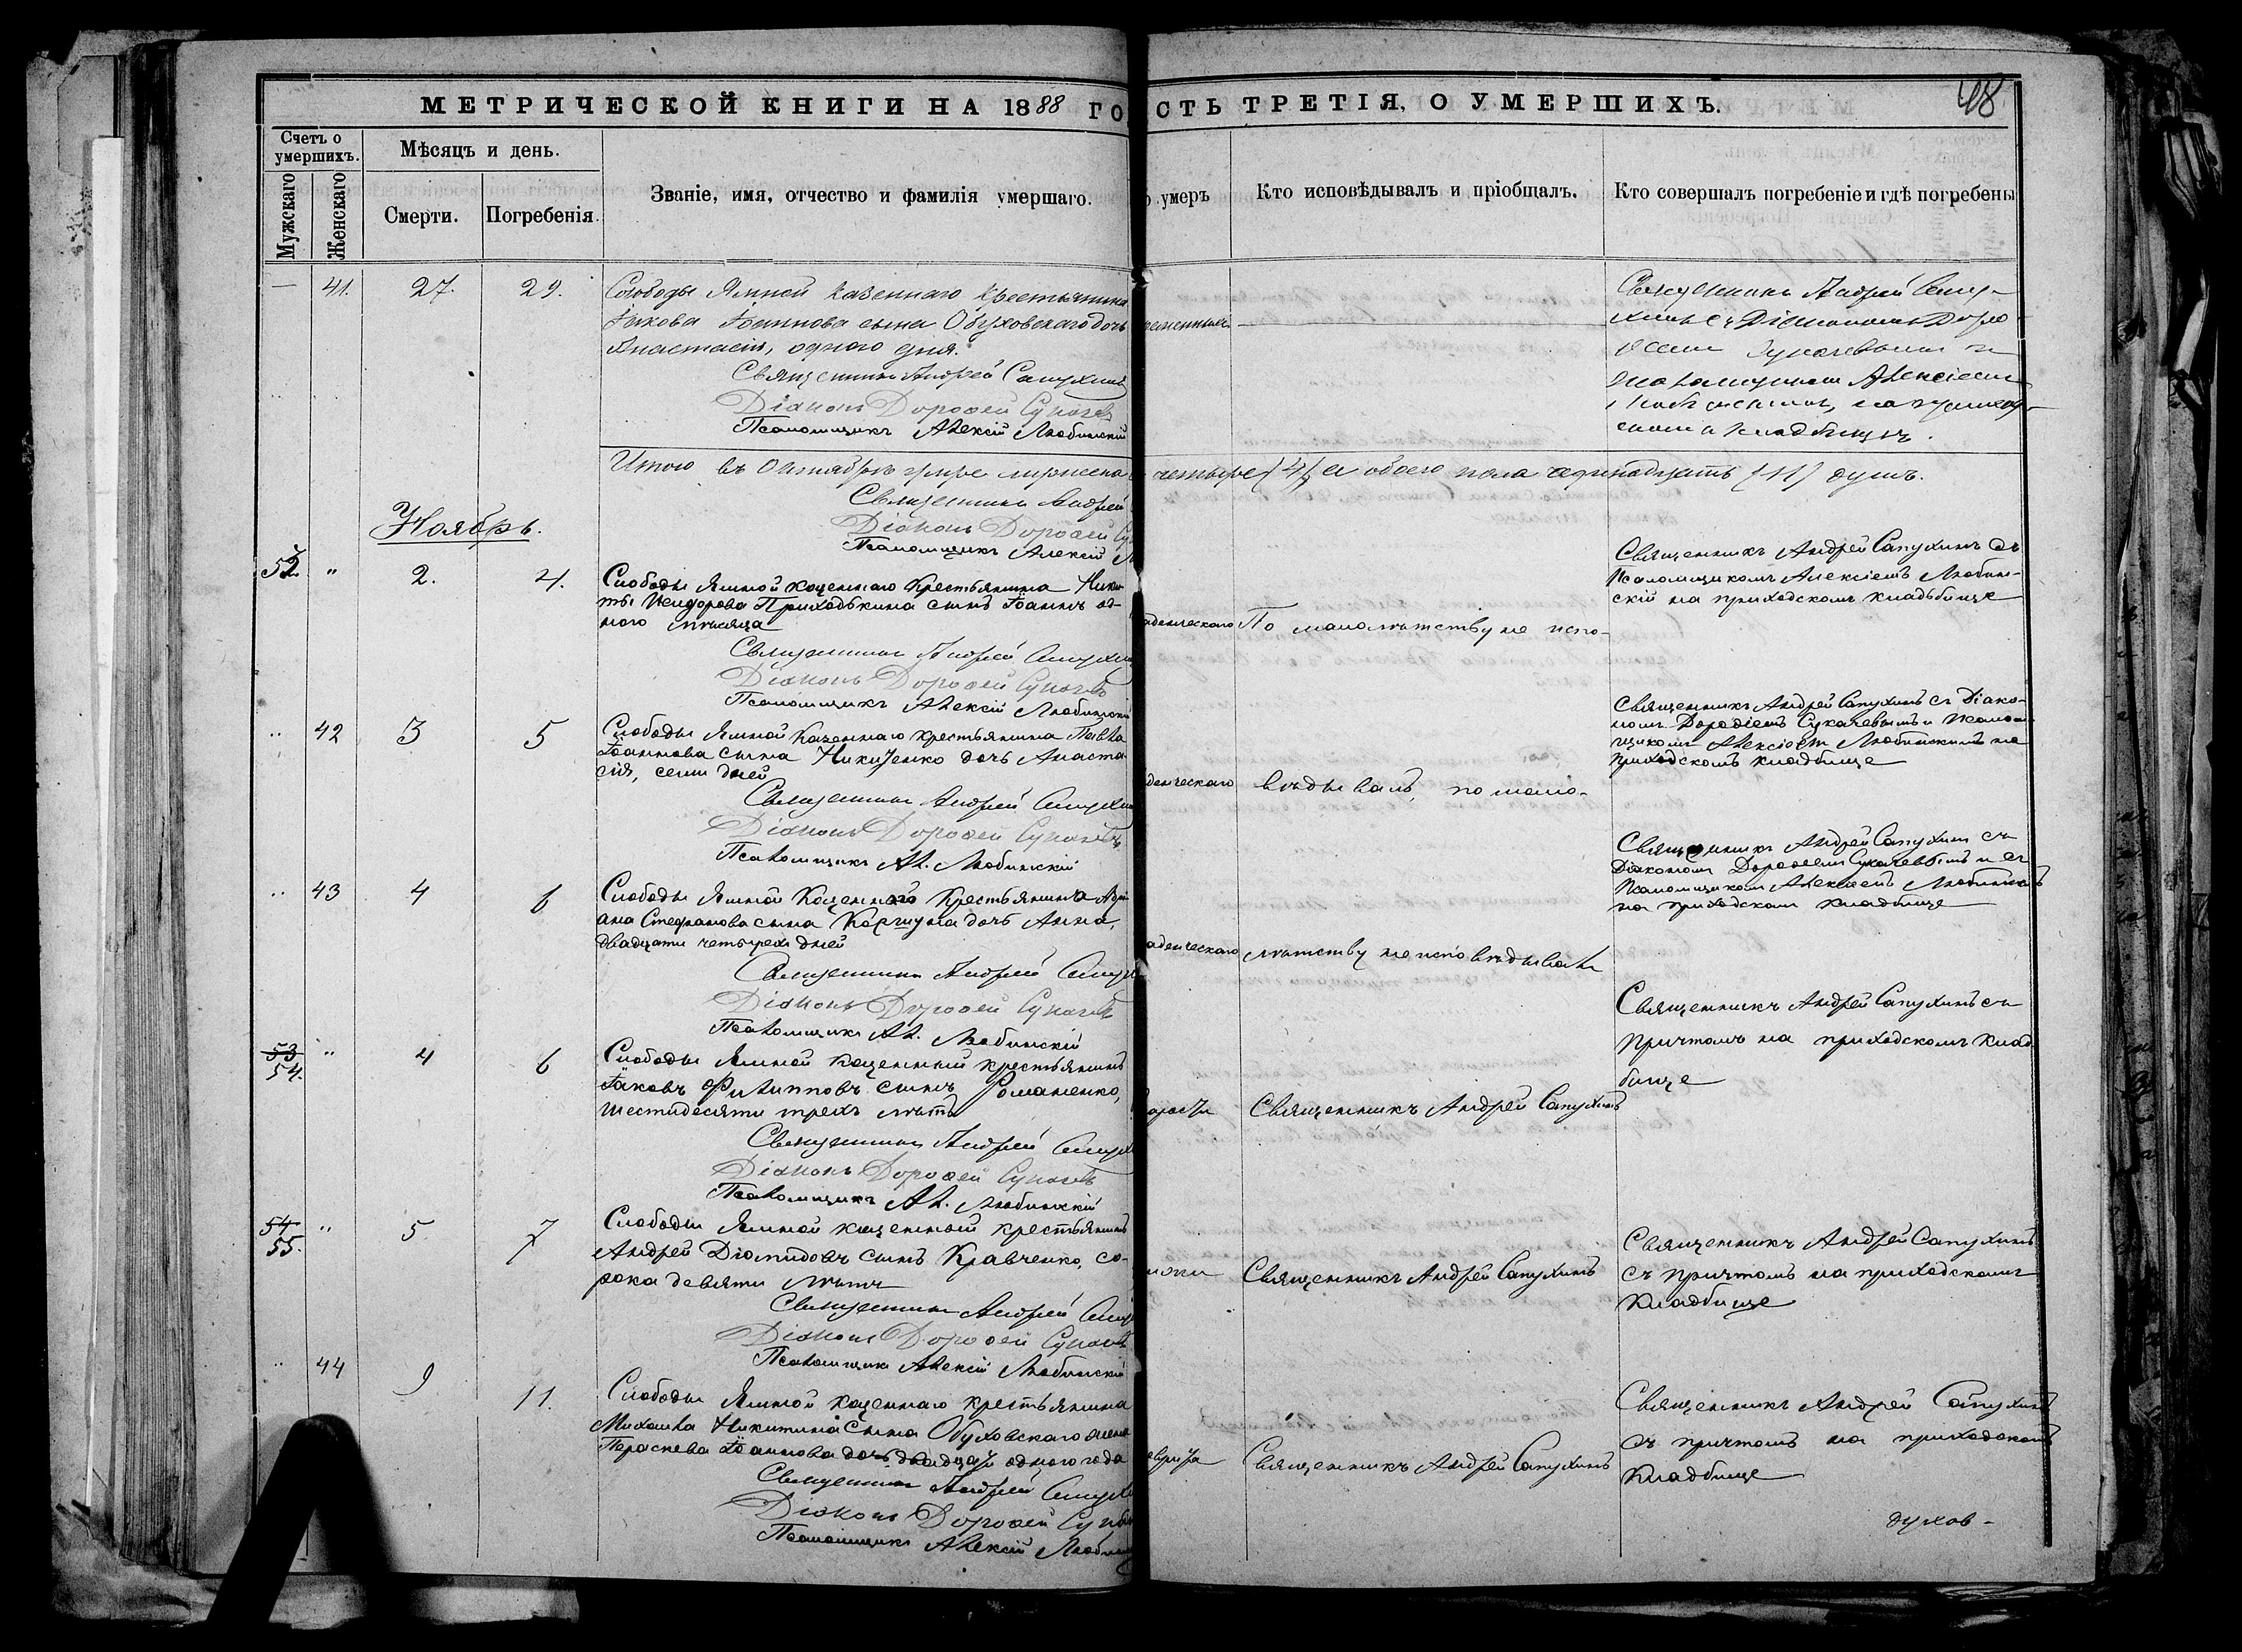 МЕТРИЧЕСКОЙ КНИГИ НА 1888 ГО
СТЬ ТРЕТІЯ, О УМЕРШИХЪ.
48
Счетъ о умершихъ.
Мужскаго
Женскаго
Мѣсяцъ и день.
Смерти.
Погребенія.
Званіе, имя, отчество и фамилія умершаго.
умеръ
Кто исповѣдывалъ и пріобщалъ.
Кто совершалъ погребеніе и гдѣ погребены
— 41. 27. 29.
Слободы Ямной казеннаго крестьянина
Іакова Іоаннова сына Обуховскаго дочь
Анастасія, одного дня.
Священникъ Андрей Сапухинъ
Діаконъ Дорофей Сукачевъ
Псаломщикъ Алексій Любинскій
Священникъ Андрей Сапу-
хинъ съ Діакономъ Доро-
феемъ Сукачевымъ и
Псаломщикомъ Алексіемъ
Любинскимъ, на приход-
скомъ кладбищѣ.
Итого въ Октябрѣ умре мужеска
четыре (4) а обоего пола одинадцать (11) душъ.
Священникъ Андрей
Діаконъ Дорофей Су
Псаломщикъ Алексій Л
Ноябрь.
" 2. 4.
Слободы Ямной казеннаго Крестьянина Ники-
ты Исидорова Приходькина сынъ Іоаннъ од-
ного мѣсяца
Священникъ Андрей Сапухин
Діаконъ Дорофей Сукачевъ
Псаломщикъ Алексій Любинскій
аденческаго
По малолѣтству не испо-
Священникъ Андрей Сапухинъ съ
Псаломщикомъ Алексіемъ Любин-
скій на приходскомъ кладьбище
" 42 3 5
Слободы Ямной Казеннаго крестьянина Павла
Іоаннова сына Никитенко дочь Анаста
сія, семи дней
Священникъ Андрей Сапухин
Діаконъ Дорофей Сукачевъ
Псаломщикъ Ал. Любинскій
денческаго
вѣдывалъ, по мало-
Священникъ Андрей Сапухинъ съ Діако-
номъ Дорофіемъ Сукачевымъ и Псалом
щикомъ Алексіемъ Любинскимъ на
приходскомъ кладбище
" 43 4 6
Слободы Ямной Казеннаго Крестьянина Адрі
ана Стефанова сына Коршуна дочь Анна,
двадцати четырехъ дней
Священникъ Андрей Сапух
Діаконъ Дорофей Сукачевъ
Псаломщикъ Ал. Любинскій
аденческаго
лѣтству не исповѣдывалъ
Священникъ Андрей Сапухин съ
Діакономъ Дорофеемъ Сукачевымъ и съ
Псаломщикомъ Алексіемъ Любинскимъ
на приходскомъ кладбище
53 54. " 4 6
Слободы Ямной казенный крестьянинъ
Іаковъ Филипповъ сынъ Романенко,
шестидесяти трехъ лѣтъ
Священникъ Андрей Сапух
Діаконъ Дорофей Сукачевъ
Псаломщикъ Ал. Любинскій
Священникъ Андрей Сапухинъ
Священникъ Андрей Сапухинъ съ
Причтомъ на приходскомъ клад
бище
54 55. " 5 7
Слободы Ямной казенный крестьянинъ
Андрей Діомидовъ сынъ Кравченко, со-
рока девяти лѣтъ
Священникъ Андрей Сапу
Діаконъ Дорофей Сукачевъ
Псаломщикъ Алексій Любинскій
Священникъ Андрей Сапухинъ
Священникъ Андрей Сапухинъ
съ причтомъ на приходскомъ
кладбище
" 44 9 11.
Слободы Ямной казеннаго крестьянина
Михаила Никитина сына Обуховскаго жена
Параскева Іоаннова дочь двадцати одного года
Священникъ Андрей Сапух
Діаконъ Дорофей Сукач
Псаломщикъ Алексій Любин
Священникъ Андрей Сапухинъ
Священникъ Андрей Сапухинъ
съ причтомъ на приходскомъ
кладбище
духов-